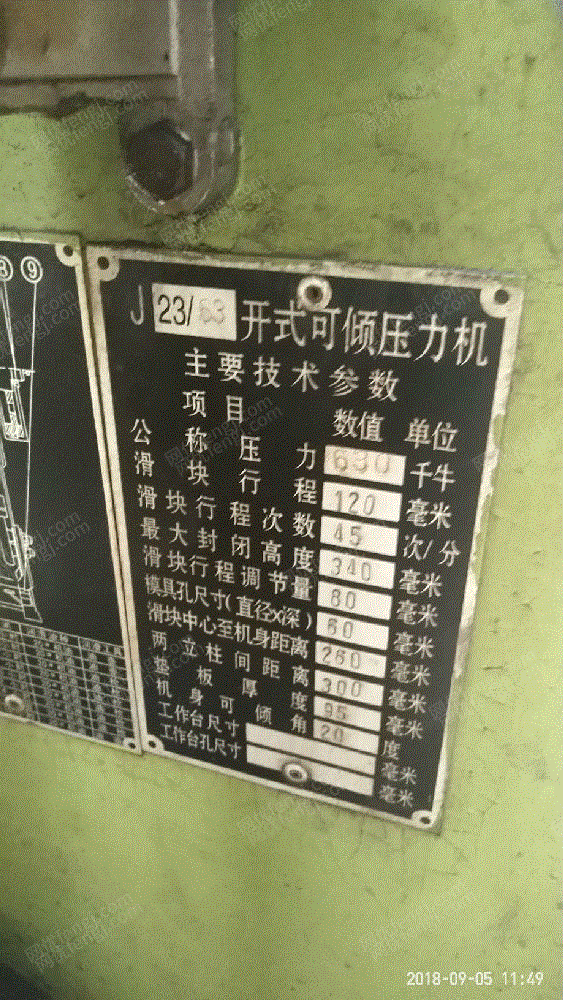 ⑧ ⑨
J 23/63 开式可倾压力机
主要技术参数
项目 数值 单位
公称压力 630 千牛
滑块行程 120 毫米
滑块行程次数 45 次/分
最大封闭高度 340 毫米
滑块行程调节量 80 毫米
模具孔尺寸(直径x深) 60 毫米
滑块中心至机身距离 260 毫米
两立柱间距离 300 毫米
垫板厚度 95 毫米
机身可倾角 20 度
工作台尺寸 毫米
工作台孔尺寸 毫米
2018-09-05 11:49